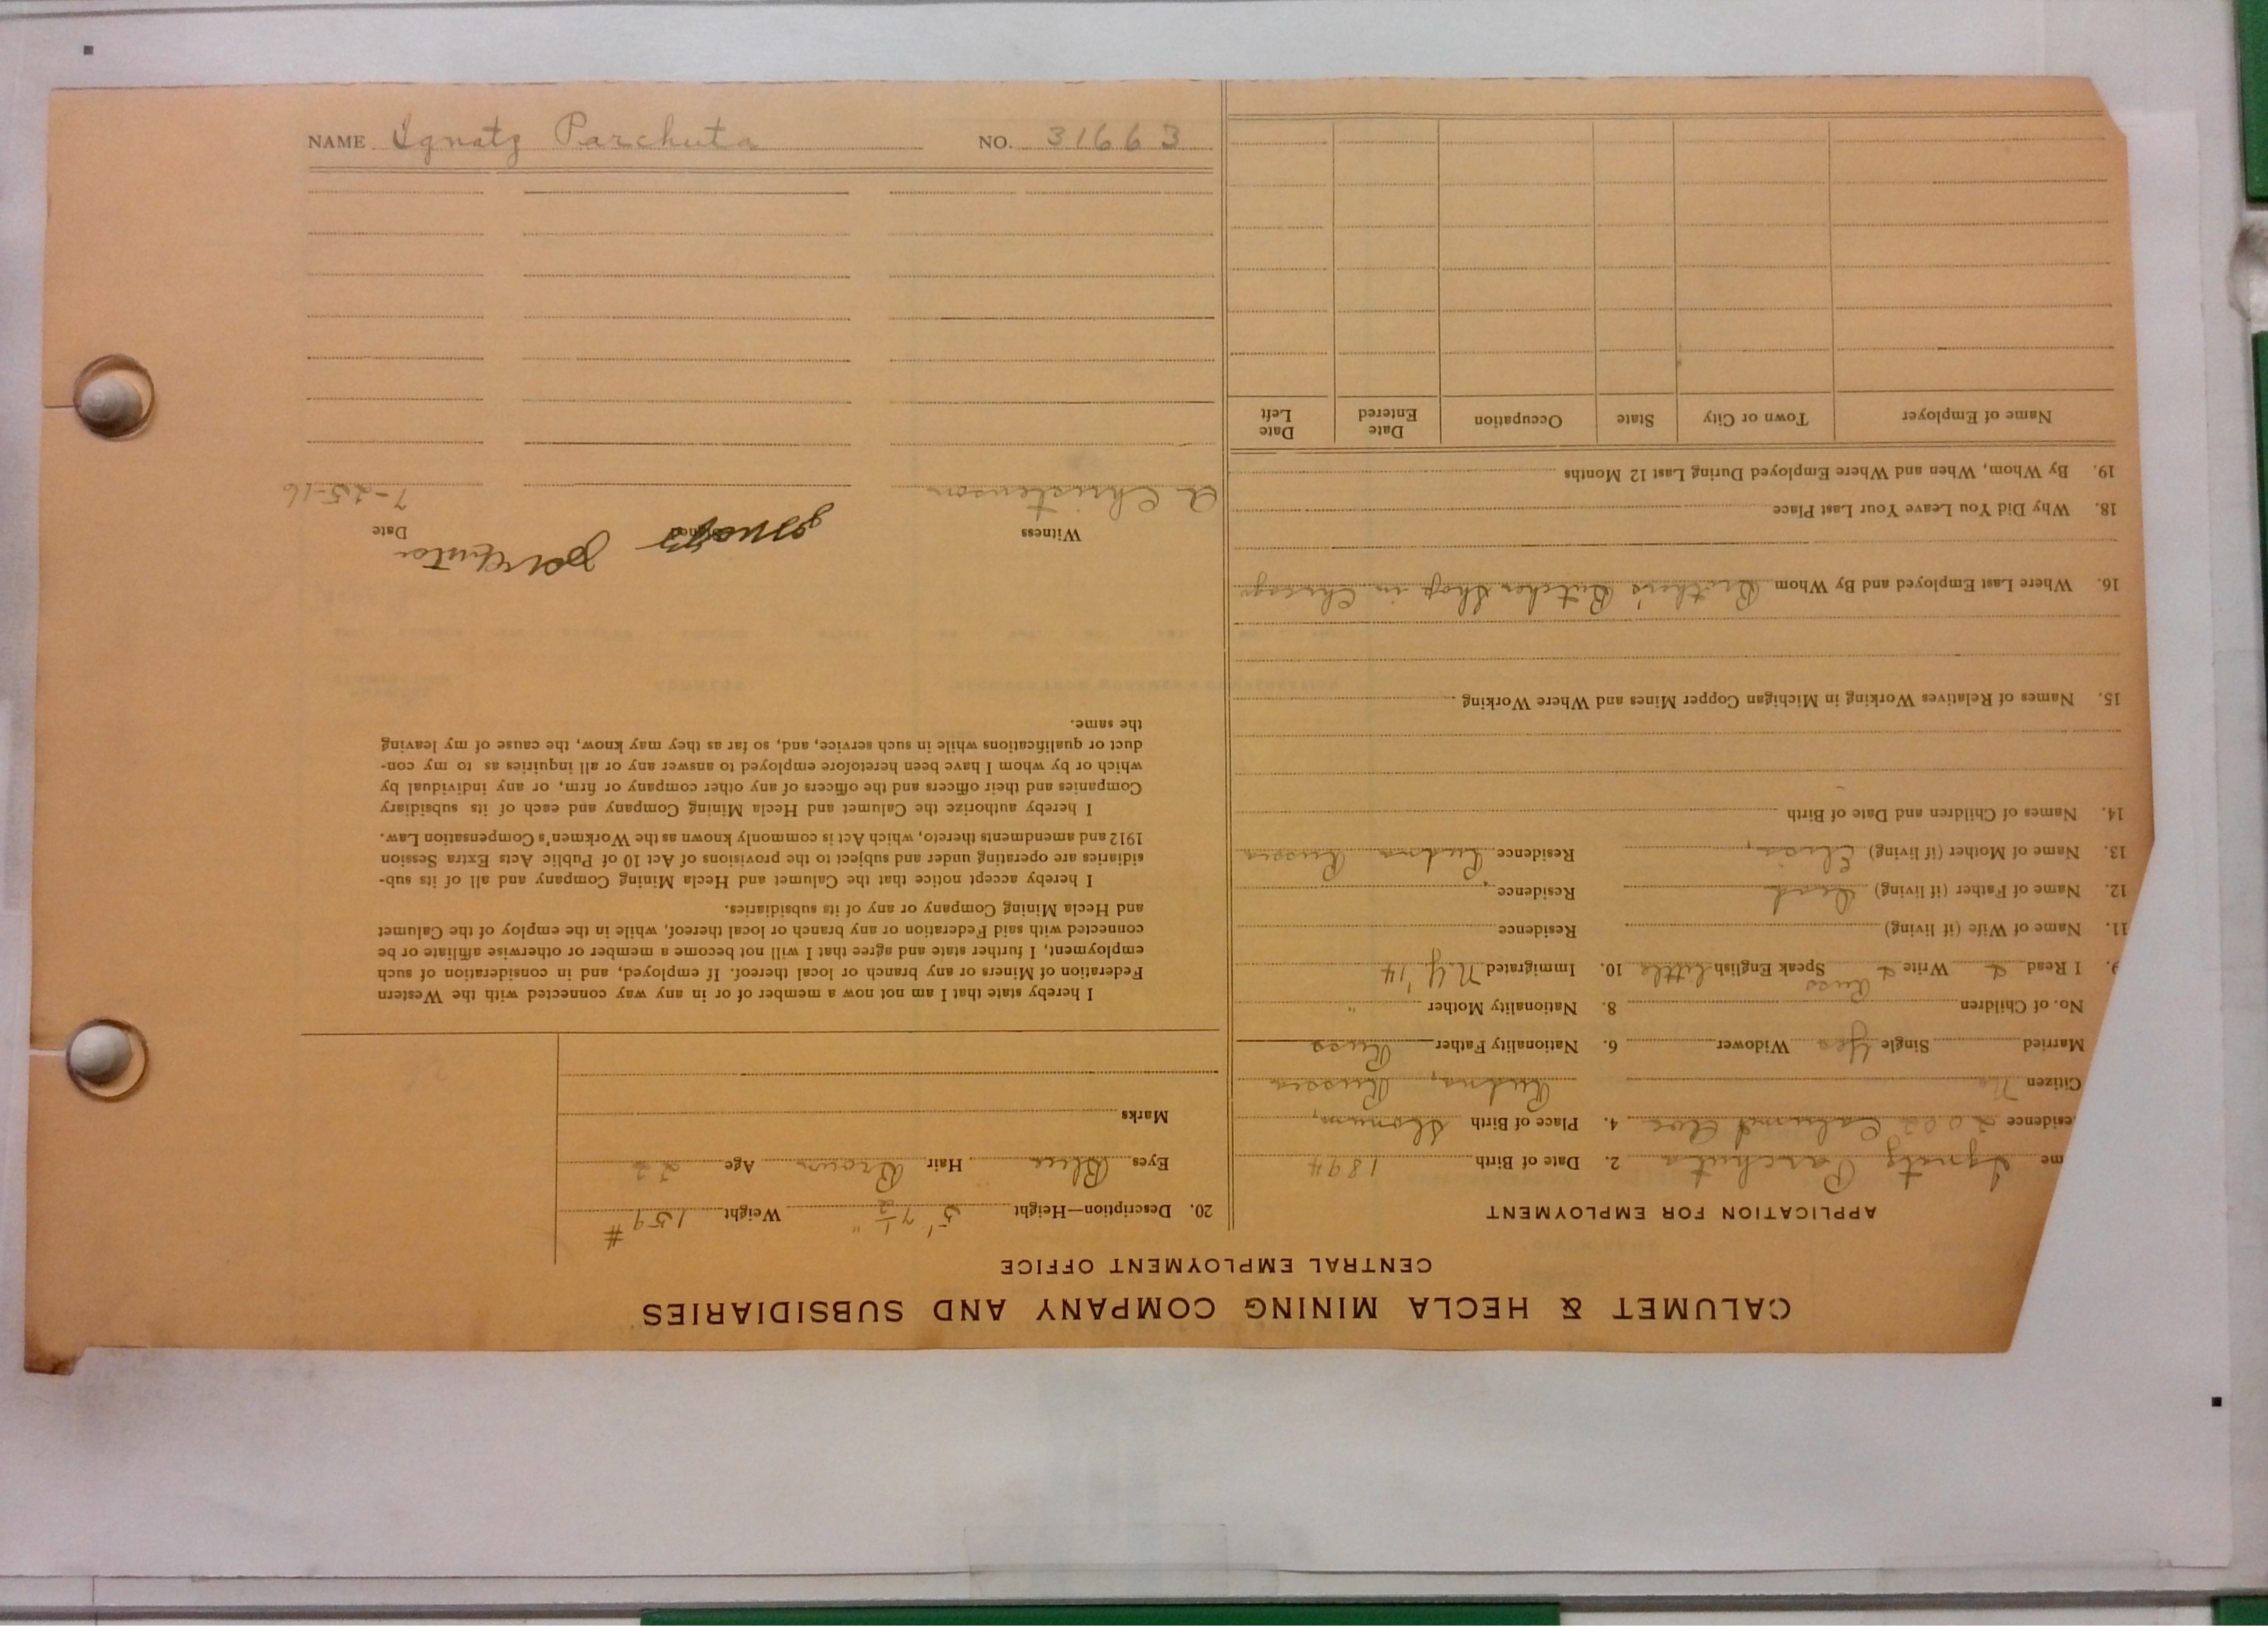 CALUMET & HECLA MINING COMPANY AND SUBSIDIARIES
CENTRAL EMPLOYMENT OFFICE
APPLICATION FOR EMPLOYMENT
me Ignatz Parchuta 2. Date of Birth 1894
esidence 2002 Calumet Ave 4. Place of Birth Slonum,
Citizen No Rudna, Russia
Married Single Yes Widower 6. Nationality Father Russ
No. of Children 8. Nationality Mother "
9. I Read & Write & Russ Speak English little 10. Immigrated N.Y. '14
11. Name of Wife (if living) Residence
12. Name of Father (if living) Dead Residence
13. Name of Mother (if living) Residence Rudna Russia
14. Names of Children and Date of Birth
15. Names of Relatives Working in Michigan Copper Mines and Where Working
16. Where Last Employed and By Whom Brother's Butcher Shop in Chicago
18. Why Did You Leave Your Last Place
19. By Whom, When and Where Employed During Last 12 Months
Name of Employer Town or City State Occupation Date Entered Date Left
20. Description—Height 5' 7 1/2" Weight 159 #
Eyes Blue Hair Brown Age 22
Marks
I hereby state that I am not now a member of or in any way connected with the Western
Federation of Miners or any branch or local thereof. If employed, and in consideration of such
employment, I further state and agree that I will not become a member or otherwise affiliate or be
connected with said Federation or any branch or local thereof, while in the employ of the Calumet
and Hecla Mining Company or any of its subsidiaries.
I hereby accept notice that the Calumet and Hecla Mining Company and all of its sub-
sidiaries are operating under and subject to the provisions of Act 10 of Public Acts Extra Session
1912 and amendments thereto, which Act is commonly known as the Workmen's Compensation Law.
I hereby authorize the Calumet and Hecla Mining Company and each of its subsidiary
Companies and their officers and the officers of any other company or firm, or any individual by
which or by whom I have been heretofore employed to answer any or all inquiries as to my con-
duct or qualifications while in such service, and, so far as they may know, the cause of my leaving
the same.
Witness Signed Date
A Christenson 7-25-16
NAME Ignatz Parchuta NO. 31663